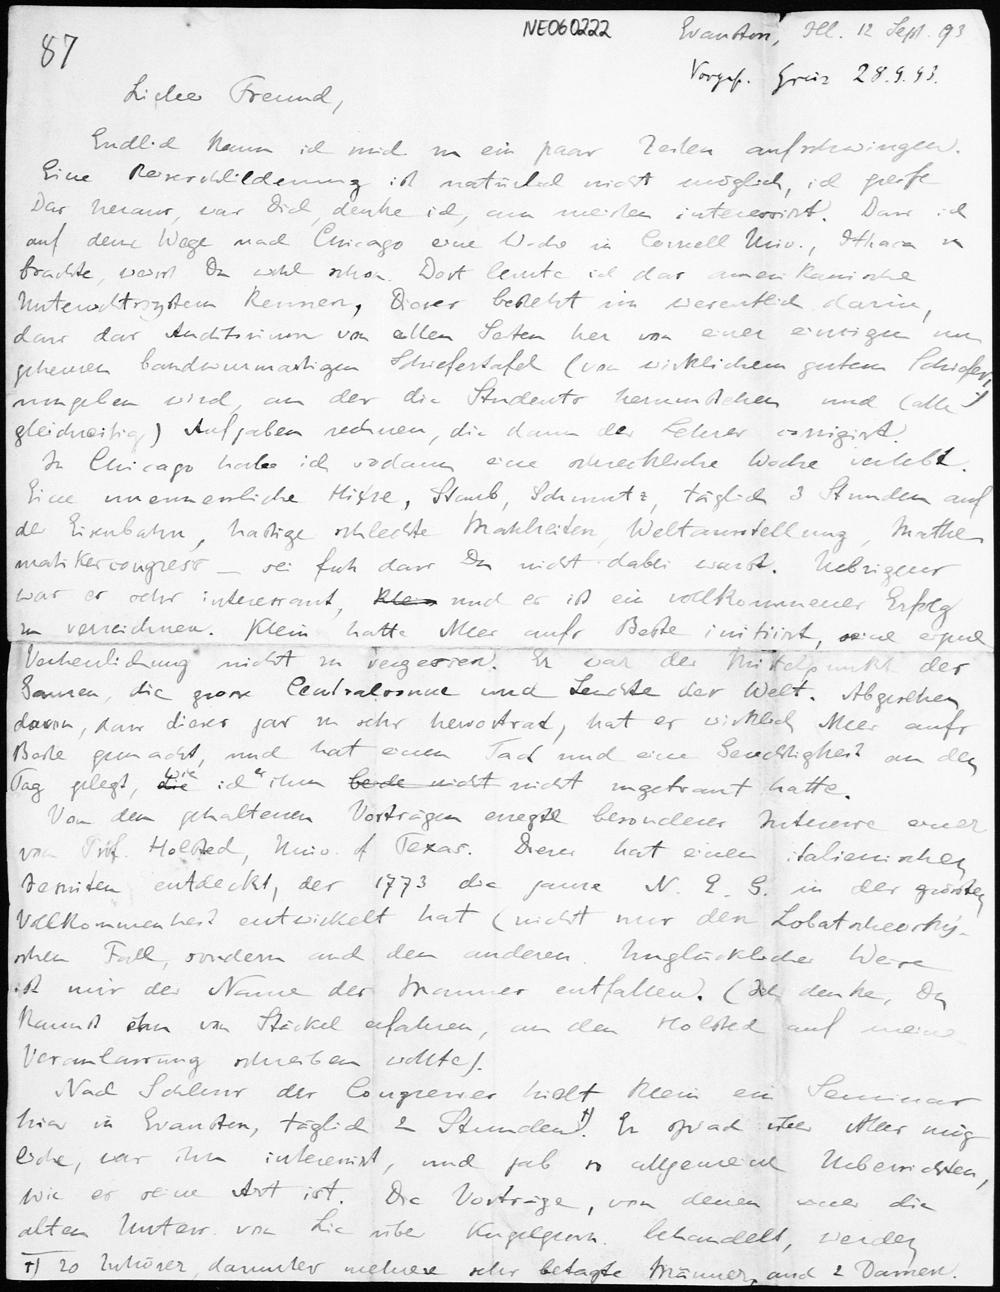 87
NE060222
Evanston, Ill. 12 Sept. 93
Greiz 28.9.93.
Lieber Freund,
Endlich kann ich mich zu ein paar Zeilen aufschwingen.
Eine Reiseschilderung ist natürlich nicht möglich, ich greife
Das heraus, was Dich, denke ich, am meisten interessirt. Dass ich
auf dem Wege nach Chicago eine Woche in Cornell Univ., Ithaca zu
brachte, weisst Du wohl schon. Dort lernte ich das amerikanische
Unterrichtssystem kennen, Dieses besteht im wesentlich darin,
dass das Auditorium von allen Seiten her von einer einzigen un
geheuren bandwurmartigen Schiefertafel (von wirklichem gutem Schiefer)
umgeben wird, an der die Students herumstehen und (alle
gleichzeitig) Aufgaben rechnen, die dann der Lehrer corrigirt.
In Chicago habe ich sodann eine schreckliche Woche verlebt.
Eine unermessliche Hitze, Staub, Schmutz, täglich 3 Stunden auf
der Eisenbahn, hastige schlechte Mahlzeiten, Weltausstellung, Mathe
matikercongress – sei froh dass Du nicht dabei warst. Uebrigens
war es sehr interessant, Klein und es ist ein vollkommener Erfolg
zu verzeichnen. Klein hatte Alles aufs Beste initiirt, seine eigene
Verherrlichung nicht zu vergessen. Er war der Mittelpunkt des
Ganzen, die grosse Centralsonne und Leuchte der Welt. Abgesehen
davon, dass dieses gar zu sehr hervortrat, hat er wirklich Alles aufs
Beste gemacht, und hat einen Tact und eine Gerechtigkeit an den
Tag gelegt, die wie ich es ihm nicht nicht zugetraut hatte.
Von den gehaltenen Vorträgen erregte besonderes Interesse einer
von Prof. Halsted, Univ. of Texas. Dieser hat einen italienischen
Jesuiten entdeckt, der 1773 die ganze N. E. G. in der grössten
Vollkommenheit entwickelt hat (nicht nur den Lobatschewsky-
schen Fall, sondern auch den anderen. Unglücklicher Weise
ist mir der Name des Mannes entfallen. (Ich denke, Du
kannst ihn von Stäckel erfahren, an den Halsted auf meine
Veranlassung schreiben wollte).
Nach Schluss des Congresses hielt Klein ein Seminar
hier in Evanston, täglich 2 Stunden †). Er sprach über Alles mög
liche, was ihn interessirt, und gab so allgemeine Uebersichten,
wie es seine Art ist. Die Vorträge, von denen einer die
alten Unters. von Lie über Kugelgeom. behandelt, werden
†) 20 Zuhörer, darunter mehrere sehr betagte Männer, und 2 Damen.